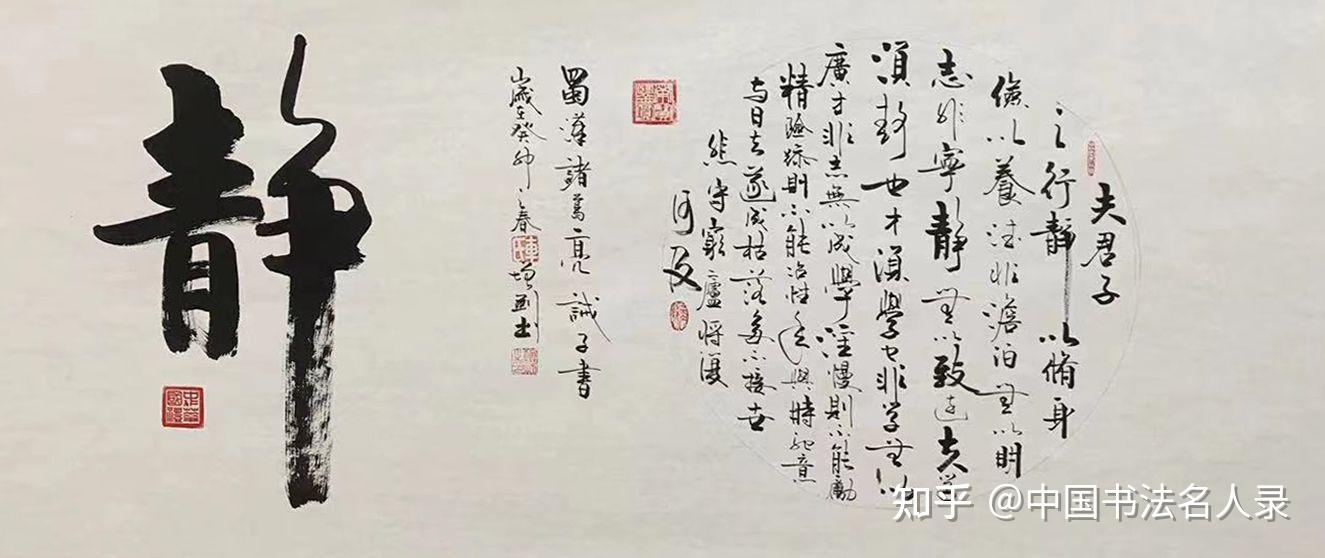 夫君子
之行靜以脩身
儉以養德非澹泊無以明
志非寧靜無以致遠夫學
須靜也才須學也非学無以
廣才非志無以成學淫慢則不能勵
精險躁則不能冶性年與時馳意
与日去遂成枯落多不接世
悲守窮廬將復
何及
蜀漢諸葛亮誡子書
歲在癸卯之春增書
靜
知乎 @中国书法名人录